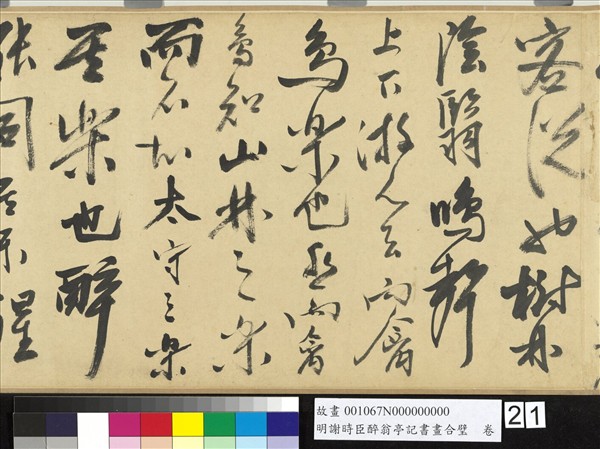 客從也樹林
陰翳鳴聲
上下游人去而禽
鳥樂也然而禽
鳥知山林之樂
而不知太守之樂
其樂也醉
能同其樂醒
故畫 001067N000000000
明謝時臣醉翁亭記書畫合璧 卷
21